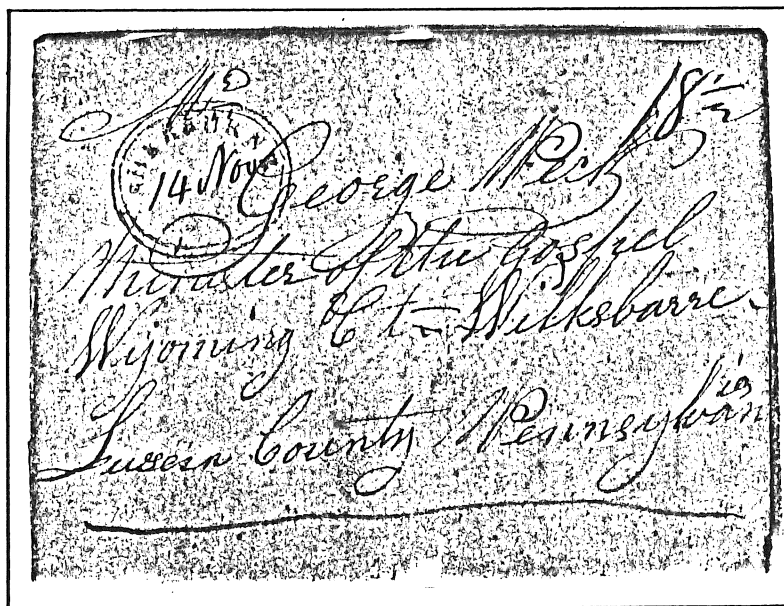 Mr 18½
14 Nov
George Peck
Minister of the Gospel
Wyoming Ct = Wilksbarre
Luzern County Pennsylvania